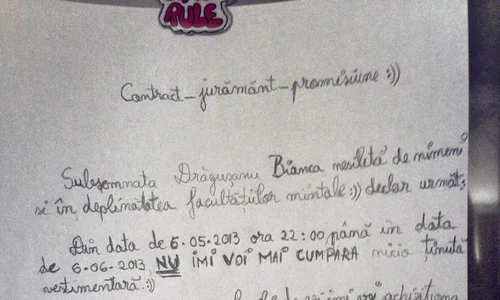 RULE
Contract_jurământ_promisiune :))
Subsemnata Drăgușanu Bianca nesilită de nimeni
și în deplinătatea facultăților mintale :)) declar următ:
Din data de 6.05.2013 ora 22:00 până în data
de 6.06.2013 NU IMI VOI MAI CUMPĂRA nicio ținută
vestimentară. :))